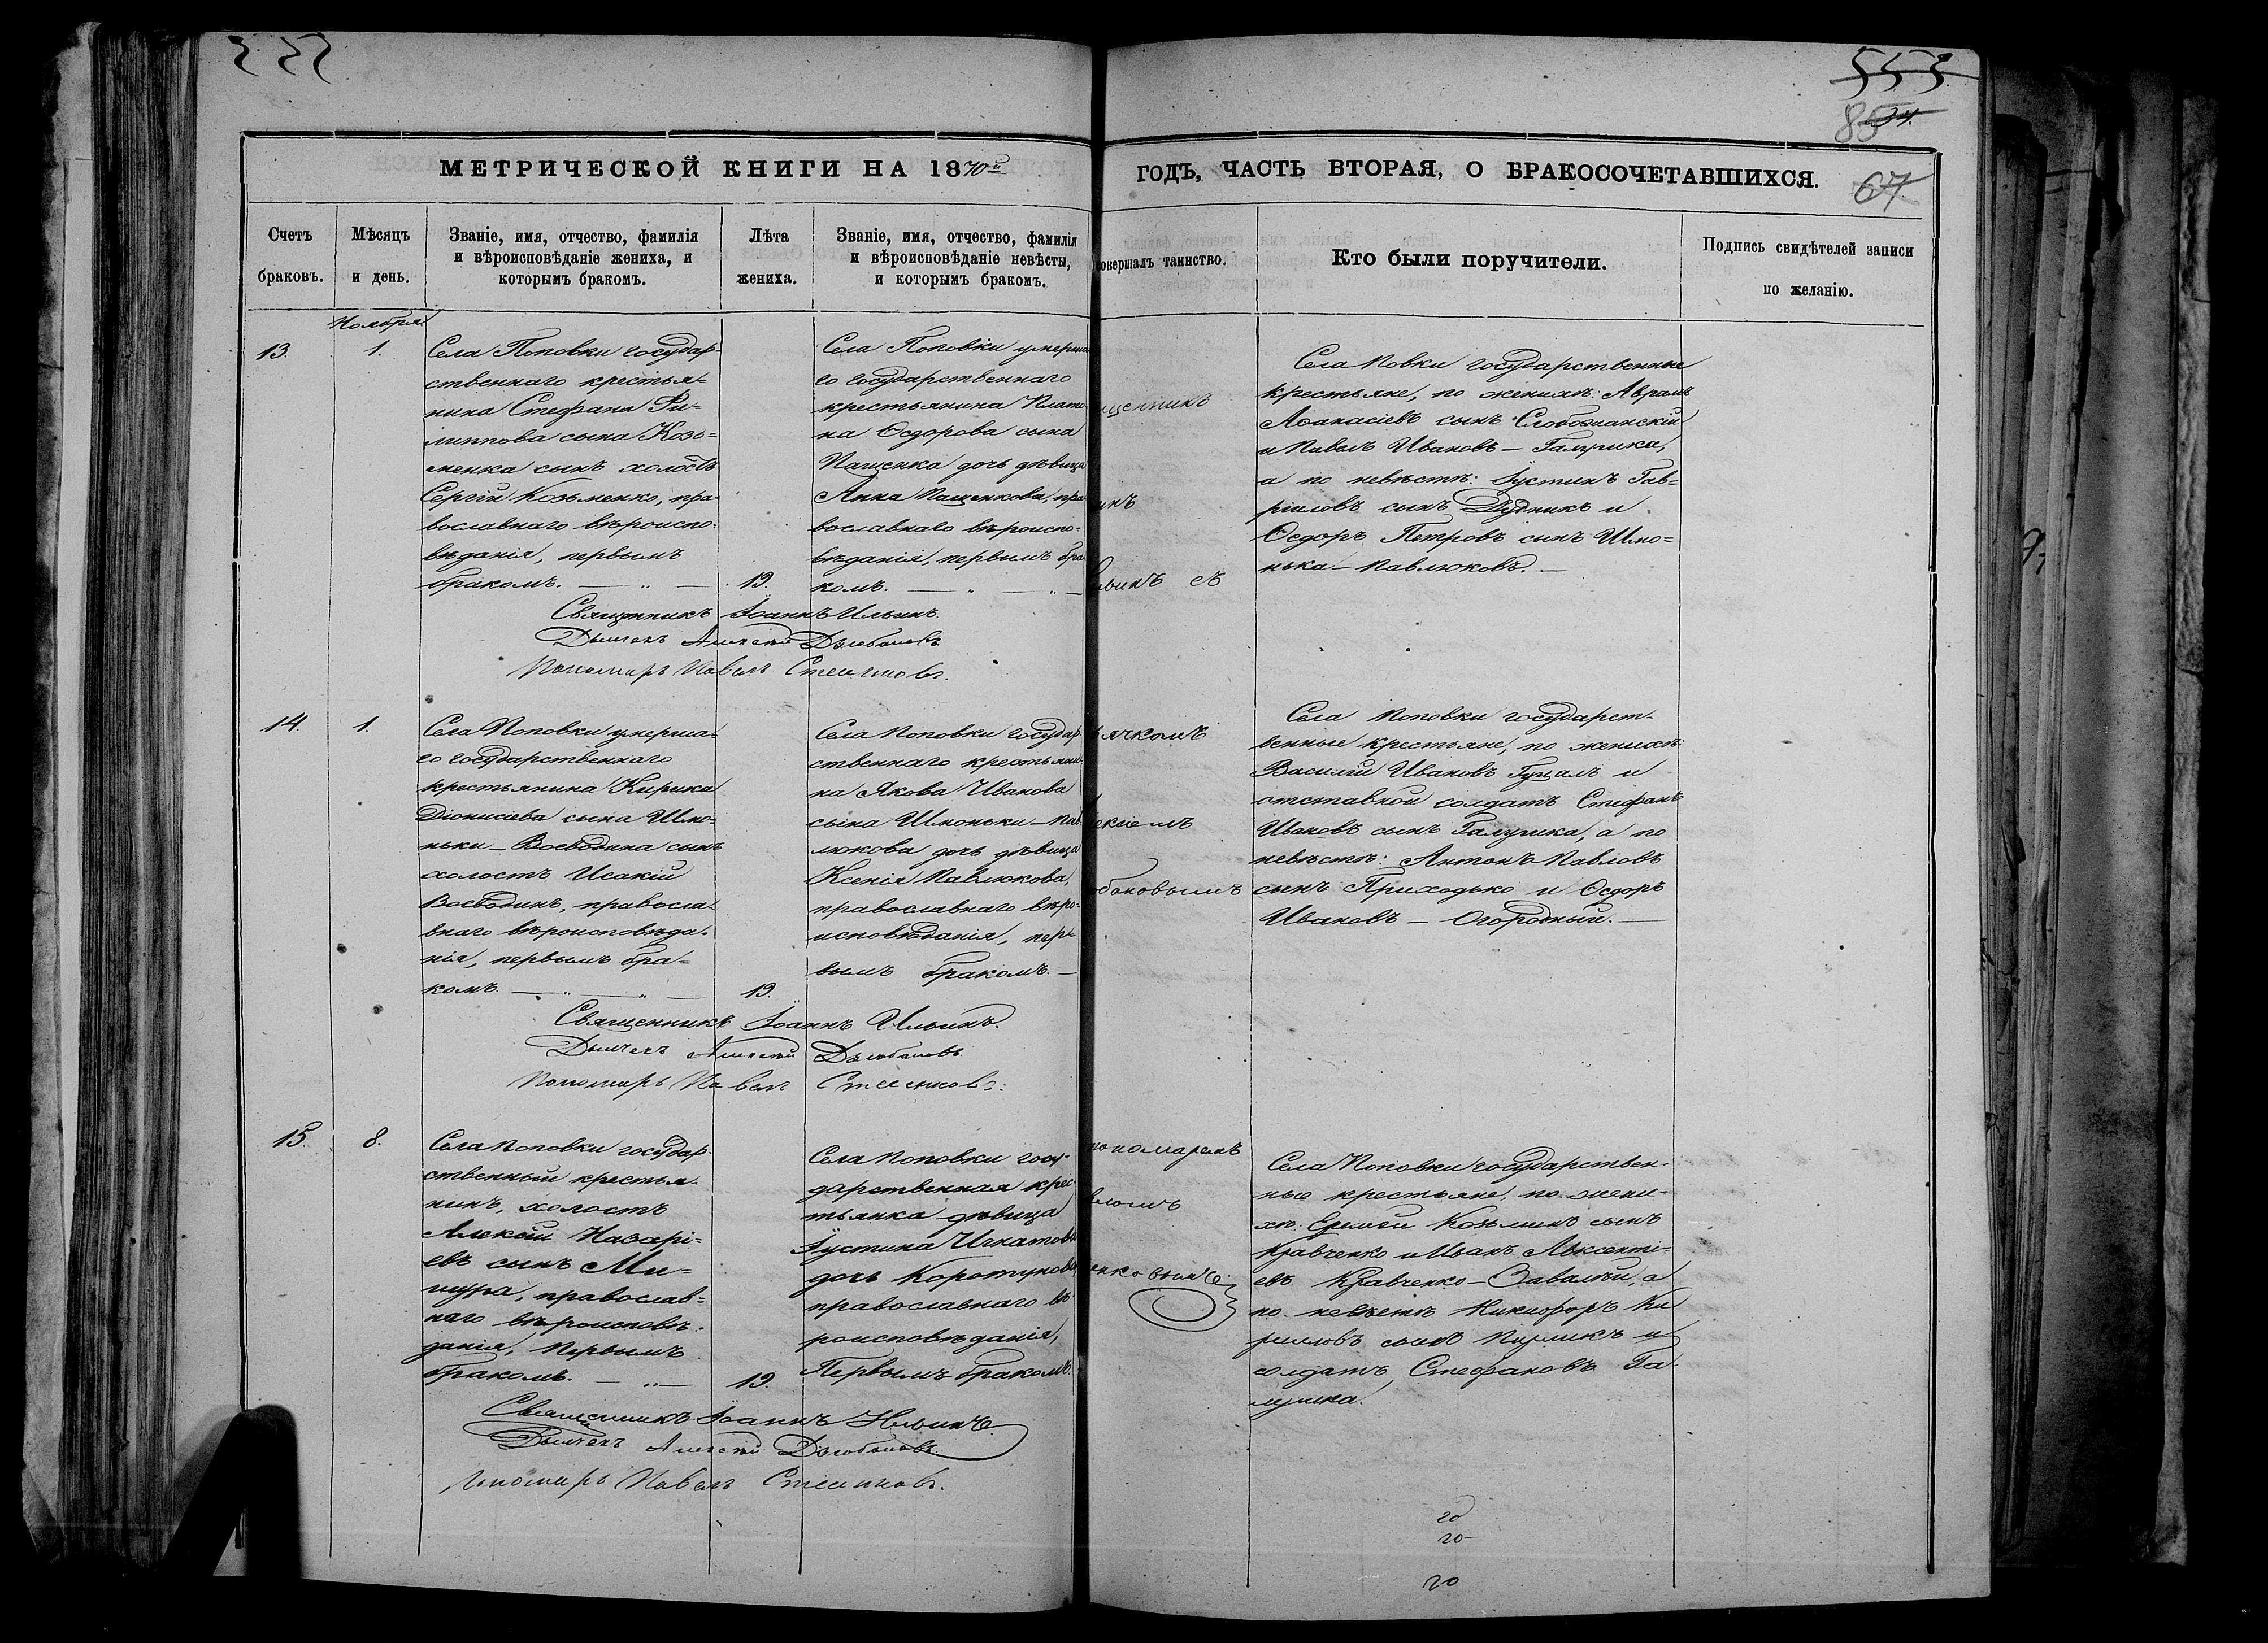 555.
84.
85
67
МЕТРИЧЕСКОЙ КНИГИ НА 1870й
ГОДЪ, ЧАСТЬ ВТОРАЯ, О БРАКОСОЧЕТАВШИХСЯ.
Счетъ
браковъ.
Мѣсяцъ
и день.
Званіе, имя, отчество, фамилія
и вѣроисповѣданіе жениха, и
которымъ бракомъ.
Лѣта
жениха.
Званіе, имя, отчество, фамилія
и вѣроисповѣданіе невѣсты,
и которымъ бракомъ.
совершалъ таинство.
Кто были поручители.
Подпись свидѣтелей записи
по желанію.
Ноября
13.
1.
Села Поповки государ-
ственнаго крестья=
нина Стефана Фи=
липпова сына Козь=
менка сынъ холостъ
Сергій Козьменко, пра-
вославнаго вѣроиспо-
вѣданія, первымъ
бракомъ.
19.
Села Поповки умерша
го государственнаго
крестьянина Плато
на Ѳедорова сына
Пащенка дочь дѣвица
Анна Пащенкова, пра
вославнаго вѣроиспо-
вѣданія, первымъ бра
комъ.
щенникъ
инъ
ьинъ съ
Села Повки государственные
крестьяне, по женихѣ: Аврамъ
Аѳанасіевъ сынъ Слобожанскій
и Павелъ Ивановъ – Галушка,
а по невѣстѣ: Іустинъ Гав=
ріиловъ сынъ Дудникъ и
Ѳедоръ Петровъ сынъ Шмо=
нька – Павлюковъ.
Священникъ Іоаннъ Ильинъ.
Дьячекъ Алексѣй
Пономарь Павелъ
14.
1.
Села Поповки умерша=
го государственнаго
крестьянина Кирика
Діонисіева сына Шмо=
ньки – Воеводина сынъ
холостъ Исакій
Воеводинъ, правосла-
внаго вѣроисповѣда-
нія, первымъ бра=
комъ.
19.
Села Поповки государ
ственнаго крестьяни-
на Якова Иванова
сына Шмоньки – Пав
люкова дочь дѣвица
Ксенія Павлюкова,
православнаго вѣро-
исповѣданія, пер
вымъ бракомъ.
ьячкомъ
ексіемъ
юбановымъ
Села Поповки государст-
венные крестьяне, по женихѣ:
Василій Ивановъ Гуцалъ и
отставной солдатъ Стефанъ
Ивановъ сынъ Галушка, а по
невѣстѣ: Антонъ Павловъ
сынъ Приходько и Ѳедоръ
Ивановъ – Огородный.
Священникъ Іоаннъ Ильинъ.
Дьячекъ Алексѣй
Пономарь Павелъ
15.
8.
Села Поповки государ-
ственный крестья-
нинъ, холостъ
Алексій Назарі=
евъ сынъ Ми=
шура, православ=
наго вѣроисповѣ-
данія, первымъ
бракомъ.
19.
Села Поповки госу-
дарственная крес
тьянка дѣвица
Іустина Игнатова
дочь Коротунова,
православнаго вѣ-
роисповѣданія,
Первымъ бракомъ.
пономаремъ
вломъ
енковымъ
Села Поповки государствен-
ные крестьяне, по жени-
хѣ: Еремѣй Козьминъ сынъ
Кравченко и Иванъ Авксенті-
евъ Кравченко – Завалій, а
по невѣстѣ Никифоръ Ки
риловъ сынъ и
солдатъ Стефановъ Га-
лушка.
Священникъ Іоаннъ Ильинъ.
Дьячекъ Алексѣй
Пономарь Павелъ